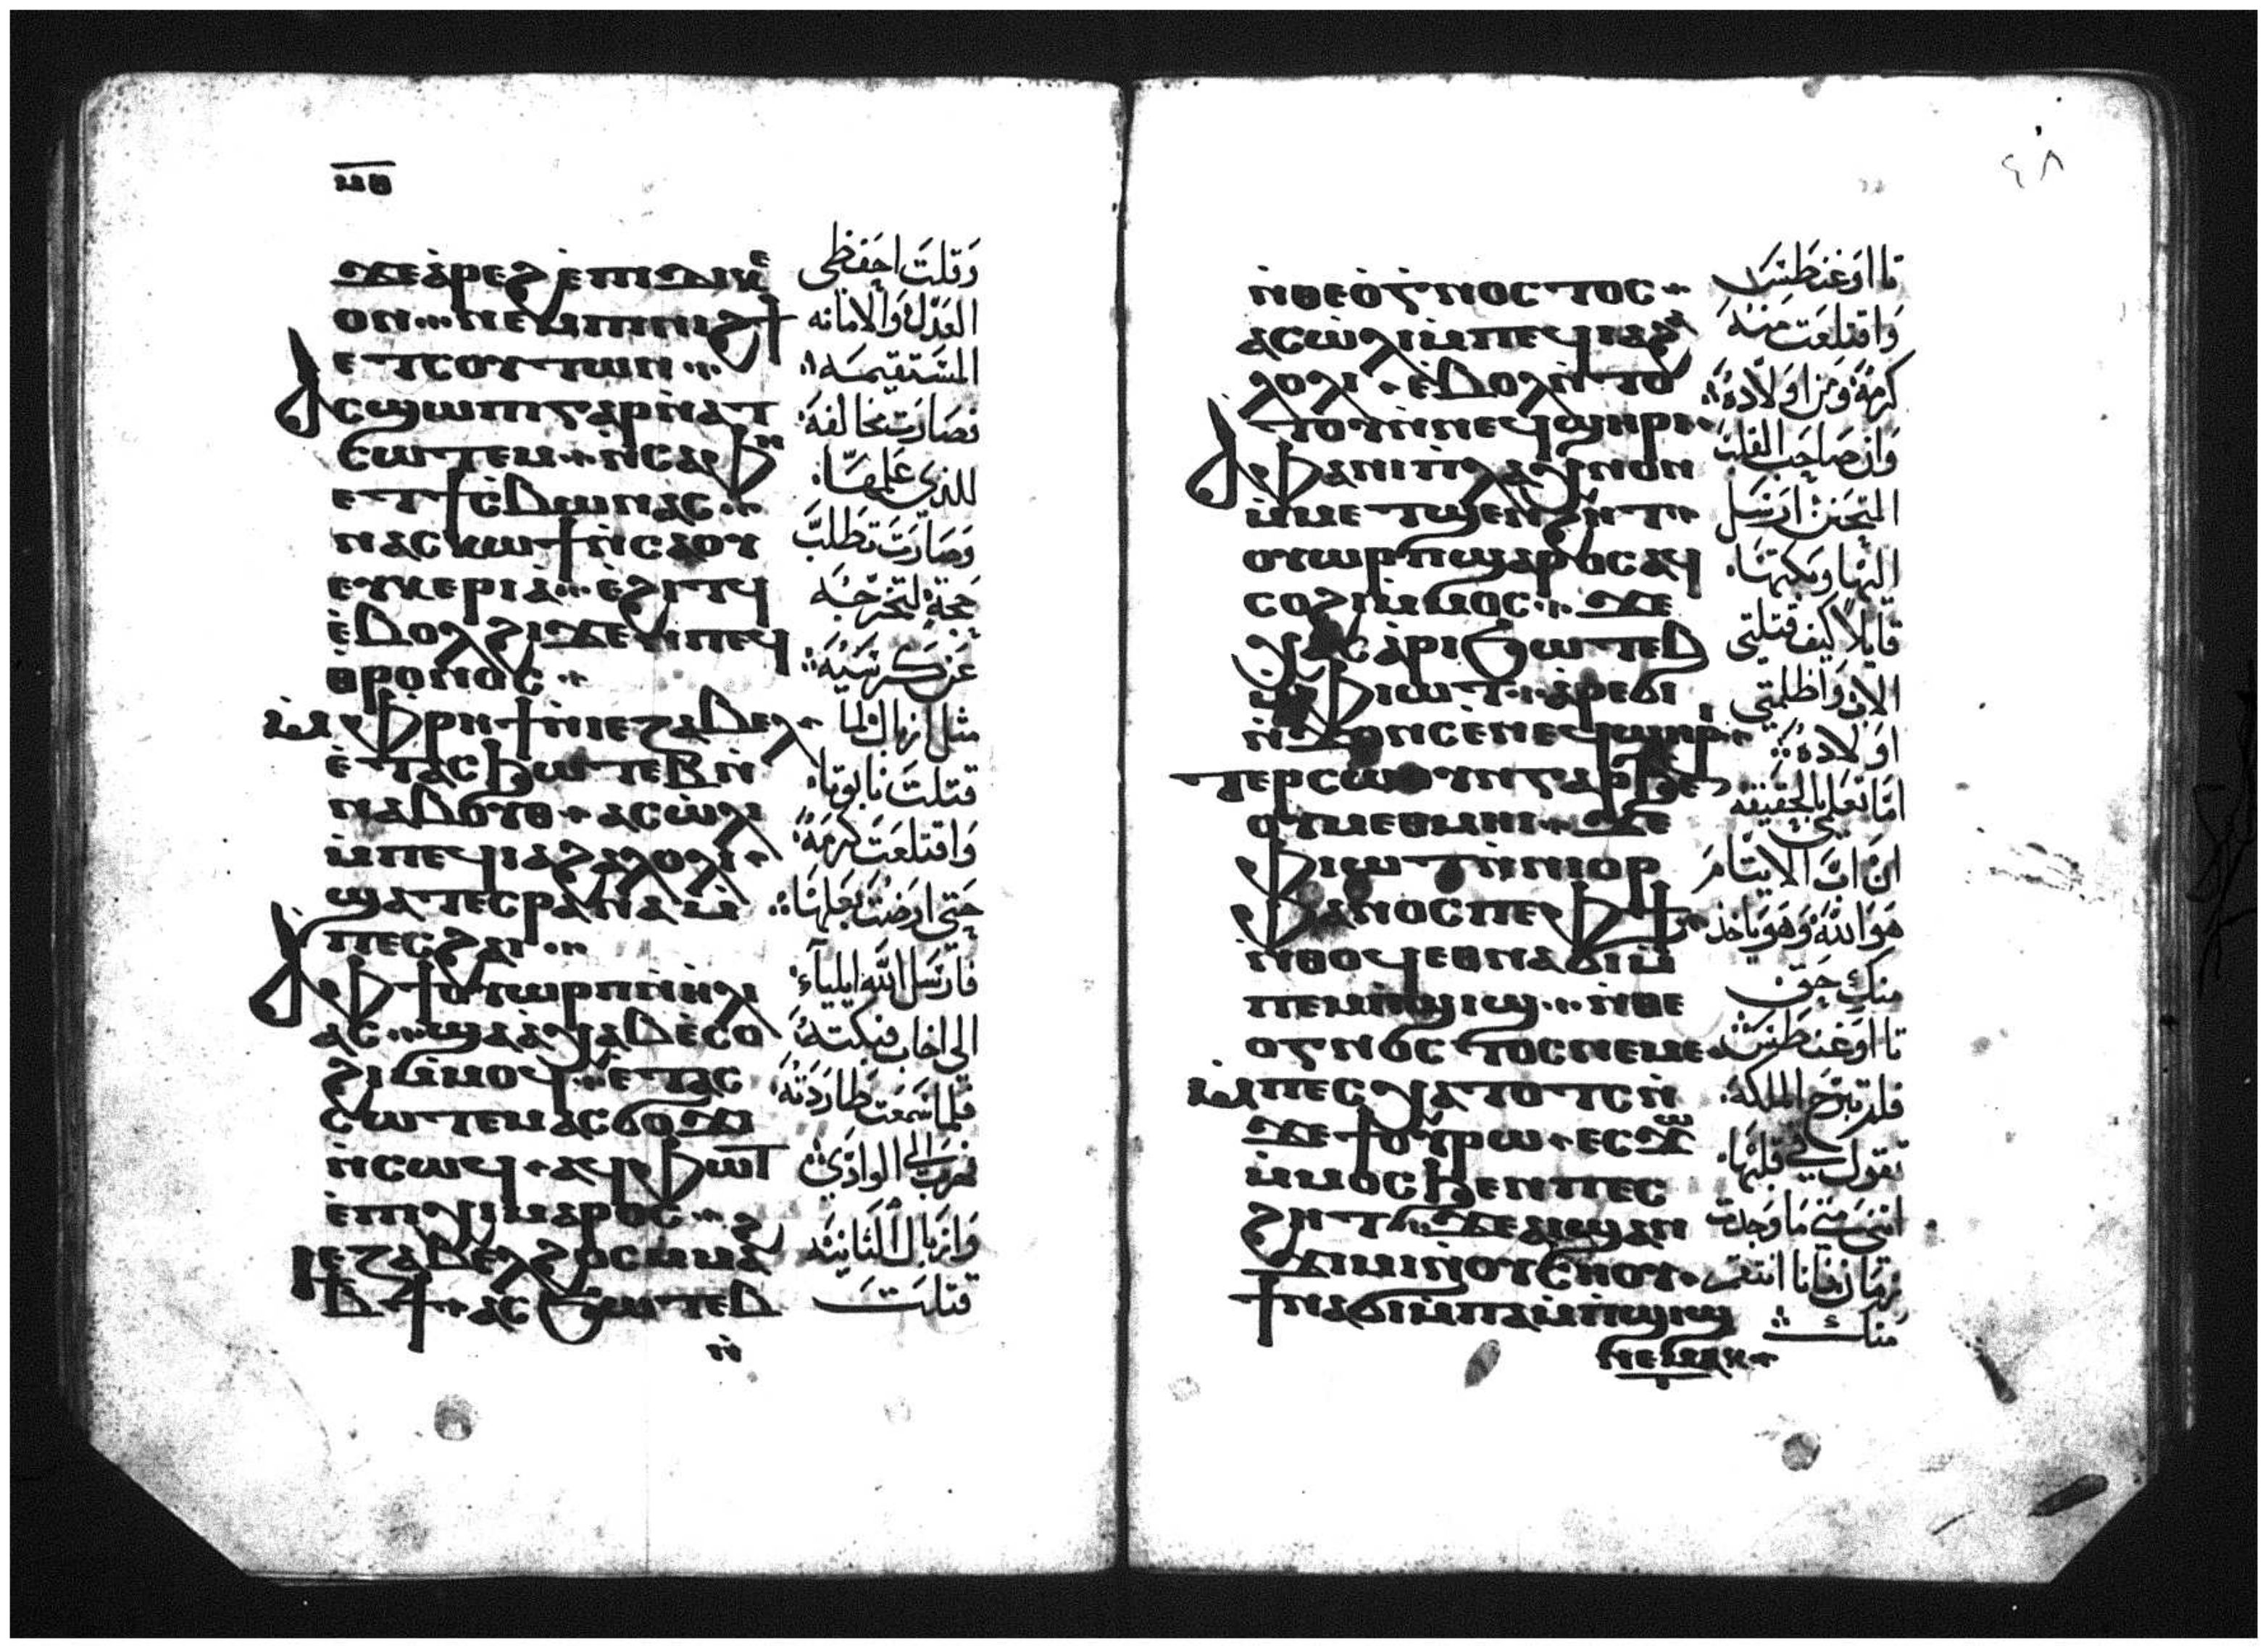 ⲙⲑ
ϫⲉ ⲁ̀ⲣⲉϩ ⲉ̀ⲡⲓⲇⲓⲕⲉ
ⲟⲛ ⲛⲉⲙ ⲡⲓⲛⲁϩϯ
ⲉⲧⲥⲟⲩⲧⲱⲛ
ⲁⲥϣⲱⲡⲓ ⲅⲁⲣ ⲛ̀ⲁⲧ
ⲥⲱⲧⲉⲙ ⲛ̀ⲥⲁ ⲫⲏ
ⲉⲧϯⲥⲃⲱ ⲛⲁⲥ
ⲛⲁⲥⲕⲱϯ ⲛ̀ⲥⲁ ⲟⲩ
ⲉⲩⲕⲉⲣⲓⲁ̀ ⲉ̀ϩⲓⲧϥ
ⲉ̀ⲃⲟⲗ ϩⲓϫⲉⲛ ⲡⲉϥ
ⲑⲣⲟⲛⲟⲥ
ⲙ̀ⲫⲣⲏϯ ⲛ̀ⲓⲉⲍⲁⲃⲉⲗ
ⲉ̀ⲧⲁⲥϧⲱⲧⲉⲃ ⲛ̀
ⲛⲁⲃⲟⲩⲑ ⲁⲥⲱ̀ⲗⲓ
ⲙ̀ⲡⲉϥⲓⲁϩⲁⲗⲟⲗⲓ
ϣⲁⲧⲉⲥⲣⲁⲛⲁ ⲙ̀
ⲡⲉⲥϩⲁⲓ
ⲁ ⲫϯ ⲟⲩⲱⲣⲡ ⲛ̀ⲏⲗⲓ
ⲁⲥ ϣⲁ ⲁ̀ⲭⲁⲃ ⲉ̀ⲥⲟ
ϩⲓ ⲙ̀ⲙⲟϥ ⲉ̀ⲧⲁⲥ
ⲥⲱⲧⲉⲙ ⲁⲥϭⲟϫⲓ
ⲛ̀ⲥⲱϥ ⲁϥⲫⲱⲧ
ⲉ̀ⲡⲓⲭⲓⲙⲁⲣⲟⲥ
ⲓⲉⲍⲁⲃⲉⲗ ϩⲱⲥ ⲙⲙⲁϩ
ⲃϯ ⲁⲥϧⲱⲧⲉⲃ
ⲛ̀
وَقلتَ احِفظى
العَدل وَالامانه
المسَتقيمَه
فصَارَت مخالفة
للذى عَلمهَا
وَصَارَت تطلبَ
حجّة لتخرجَه
عَن كرسَيهَ
مثل ازبال لما
قتلتَ نابوتا
وَاقتلعَت كرمَهُ
حتى ارضَت بعَلهَا
فارسَل الله ايليآء
الى اخاب فبكتهُ
فلما سَمعَت طاردَتهُ
فهربَ الى الوادى
وَازبال الثانيَه
قتلتَ
٤٨
ⲛ̀ⲑⲉⲟ̀ⲅⲛⲟⲥⲧⲟⲥ
ⲁⲥⲱ̀ⲗⲓ ⲙ̀ⲡⲉϥⲓⲁϩⲁ
ⲗⲟⲗⲓ ⲉ̀ⲃⲟⲗ ⲛ̀ⲧⲟ
ⲧⲟⲩ ⲛ̀ⲛⲉϥϣⲏⲣⲓ
ⲁ ⲫⲁ ⲛⲓⲡⲗⲁⲭⲛⲟⲛ
ⲙ̀ⲙⲉⲧϣⲉⲛϩⲏⲧ
ⲟⲩⲱⲣⲡ ϣⲁⲣⲟⲥ ⲁϥ
ⲥⲟϩⲓ ⲙ̀ⲙⲟⲥ ϫⲉ
ⲡⲱⲥ ⲁ̀ⲣⲓϧⲱⲧⲉⲃ
ⲙ̀ⲫⲓⲱⲧ ⲁ̀ⲣⲉϭⲓ
ⲛ̀ϫⲟⲛⲥ ⲉ̀ⲛⲉϥϣⲏⲣⲓ
ⲧⲉⲣⲥⲱⲟⲩⲛ ⲅⲁⲣ ϧⲉⲛ
ⲟⲩⲙⲉⲑⲙⲏⲓ ϫⲉ
ⲫⲓⲱⲧ ⲛ̀ⲛⲓⲟⲣ
ⲫⲁⲛⲟⲥ ⲡⲉ ⲫϯ
ⲛ̀ⲑⲟϥ ⲉⲑⲛⲁϭⲓ ⲙ̀
ⲡⲉⲙ̀ⲡϣⲓϣ ⲛ̀ⲑⲉ
ⲟⲅⲛⲟⲥⲧⲟⲥ ⲛⲉⲙⲉ
ⲙ̀ⲡⲉⲥⲭⲁⲧⲟⲧⲥ ⲛ̀
ϫⲉ ϯⲟⲩⲣⲱ ⲉⲥϫⲱ
ⲙ̀ⲙⲟⲥ ϧⲉⲛ ⲡⲉⲥ
ϩⲏⲧ ϫⲉ ⲁⲓϣⲁⲛ
ϫⲓⲙⲓ ⲛ̀ⲟⲩⲥⲏⲟⲩ
ϯⲛⲁϭⲓ ⲙ̀ⲡⲁⲙ̀ⲡϣⲓϣ
ⲛⲉⲙⲁⲕ
تااوغنسطس
وَاقتلعَت مِنهَ
كرمَهُ وَمن اوَلادهُ
وَان صَاحبَ القلبَ
المتحنن ارسَل
اليهَا وبكتهَا
قايلاً كيف قتلتى
الابَ وَاظلمتى
اوَلادهُ
امَا تعلمى بالحقيقه
ان ابَ الايتامَ
هوَ الله وَهوَ ياخذ
منكِ حَق
تااوغنسطس
فلم تبرحَ الملكه
تقول فى قلبَها
اننى متى مَا وَجدت
زمَان فانا انتقم
منكَ